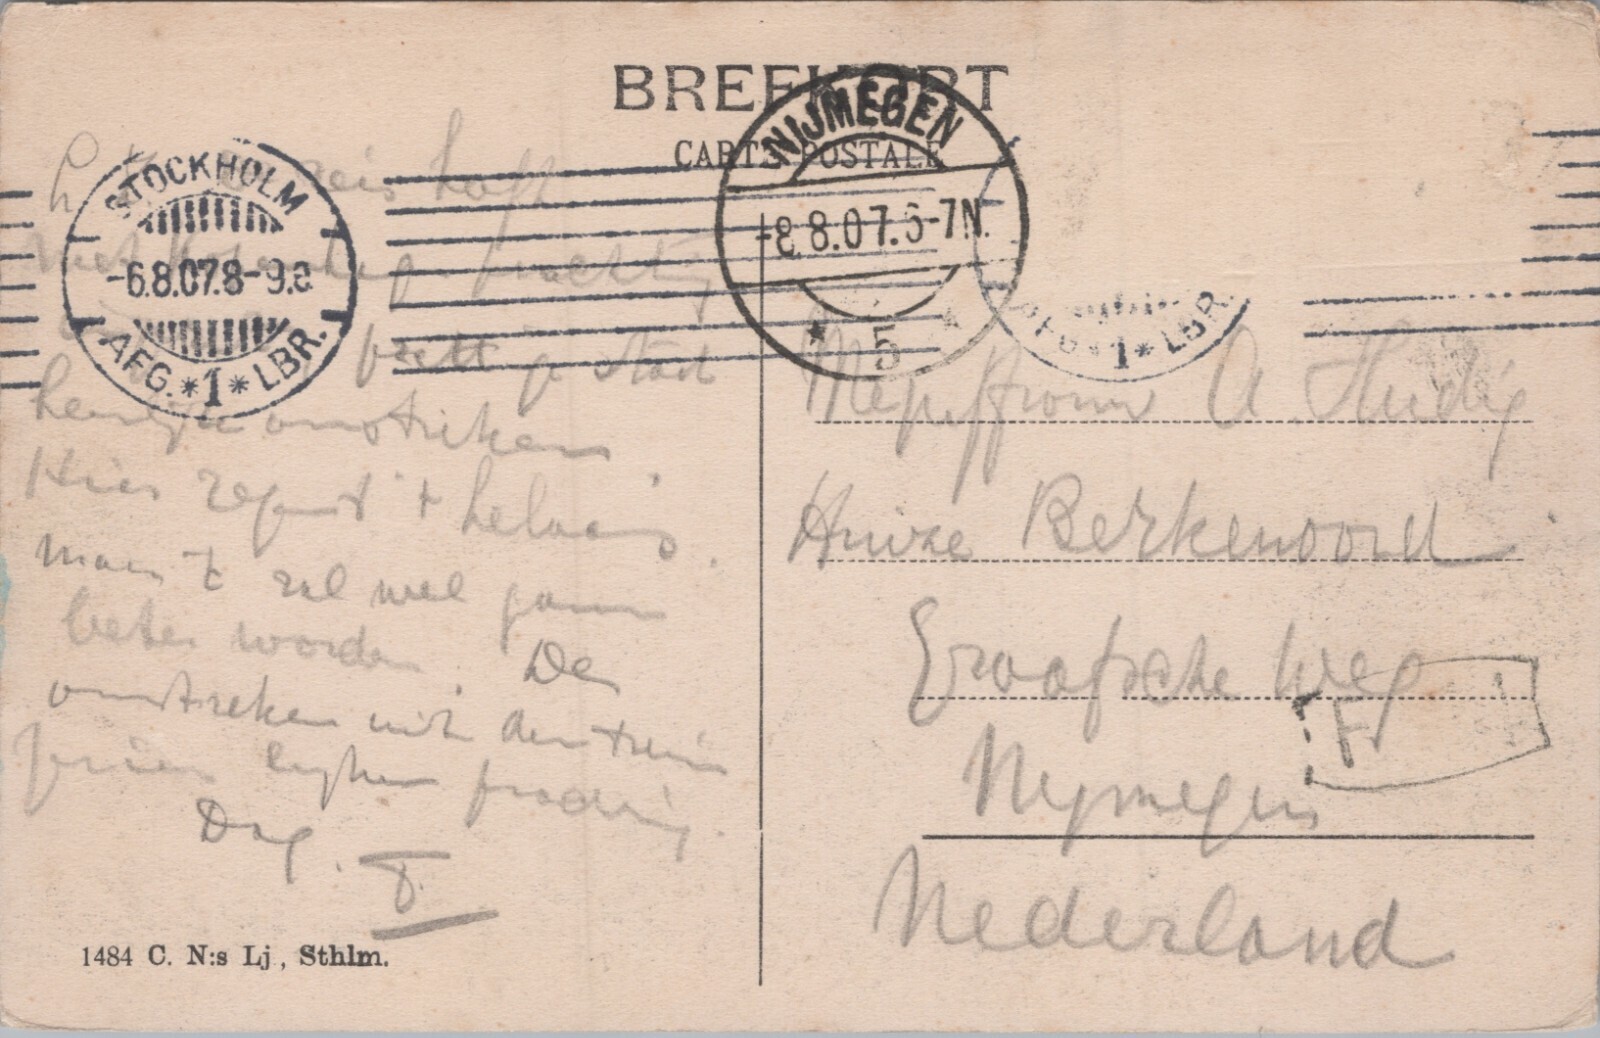 BREFKORT
CARTE POSTALE
STOCKHOLM
-6.8.07.8-9.
AFG.*1*LBR.
NIJMEGEN
-8.8.07.6-7N.
* 5 *
AFG*1*LBR.
reis
prachtig
stad
heerlijke omstreken
Hier regent 't helaas.
maar 't zal wel gauw
beter worden. De
omstreken uit den trein
prachtig.
Dag.
Mejuffrouw A. Hudig
Huize Berkenoord
Graafsche Weg
F 1
Nymegen
Nederland
1484 C. N:s Lj., Sthlm.